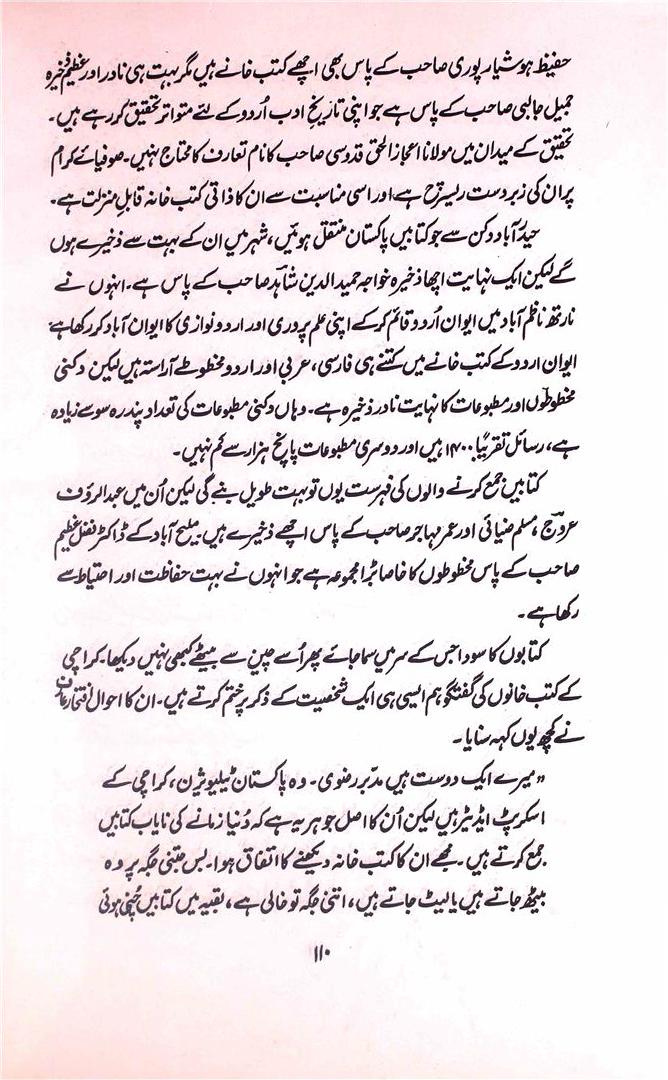 حفیظ ہوشیارپوری صاحب کے پاس بھی اچھے کتب خانے ہیں مگر بہت ہی نادر اور عظیم ذخیرہ
جمیل جالبی صاحب کے پاس ہے جو اپنی تاریخِ ادب اُردو کے لئے متواتر تحقیق کر رہے ہیں۔
تحقیق کے میدان میں مولانا اعجاز الحق قدوسی صاحب کا نام تعارف کا محتاج نہیں۔ صوفیائے کرام
پر ان کی زبردست ریسرچ ہے اور اسی مناسبت سے ان کا ذاتی کتب خانہ قابلِ منزلت ہے۔
حیدرآباد دکن سے جو کتابیں پاکستان منتقل ہوئیں، شہر میں ان کے بہت سے ذخیرے ہوں
گے لیکن ایک نہایت اچھا ذخیرہ خواجہ حمید الدین شاہد صاحب کے پاس ہے۔ انہوں نے
نارتھ ناظم آباد میں ایوان اُردو قائم کر کے اپنی علم پروری اور اردو نوازی کا ایوان آباد کر رکھا ہے۔
ایوان اردو کے کتب خانے میں کتنے ہی فارسی، عربی اور اردو مخطوطے آراستہ ہیں لیکن دکنی
مخطوطوں اور مطبوعات کا نہایت نادر ذخیرہ ہے۔ وہاں دکنی مطبوعات کی تعداد پندرہ سو سے زیادہ
ہے، رسائل تقریباً ۱۴۰۰ ہیں اور دوسری مطبوعات پانچ ہزار سے کم نہیں۔
کتابیں جمع کرنے والوں کی فہرست یوں تو بہت طویل بنے گی لیکن اُن میں عبدالرؤف
عروج، مسلم ضیائی اور عمر مہاجر صاحب کے پاس اچھے ذخیرے ہیں۔ ملیح آباد کے ڈاکٹر فضل عظیم
صاحب کے پاس مخطوطوں کا خاصا بڑا مجموعہ ہے جو انہوں نے بہت حفاظت اور احتیاط سے
رکھا ہے۔
کتابوں کا سودا جس کے سر میں سما جائے پھر اُسے چین سے بیٹھے کبھی نہیں دیکھا۔ کراچی
کے کتب خانوں کی گفتگو ہم ایسی ہی ایک شخصیت کے ذکر پر ختم کرتے ہیں۔ ان کا احوال افتخار عارف
نے کچھ یوں کہہ سنایا۔
”میرے ایک دوست ہیں مدبّر رضوی۔ وہ پاکستان ٹیلیویژن، کراچی کے
اسکرپٹ ایڈیٹر ہیں لیکن اُن کا اصل جوہر یہ ہے کہ دُنیا زمانے کی نایاب کتابیں
جمع کرتے ہیں۔ مجھے ان کا کتب خانہ دیکھنے کا اتفاق ہوا۔ بس جتنی جگہ پر وہ
بیٹھ جاتے ہیں یا لیٹ جاتے ہیں، اتنی جگہ تو خالی ہے، بقیہ میں کتابیں چُنی ہوئی
۱۱۰